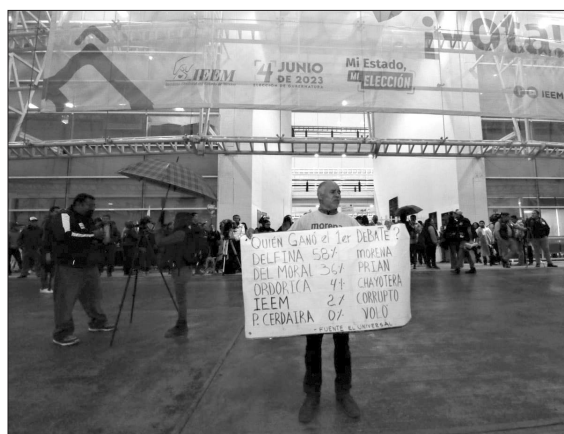 ¡Vota!
IEEM
4 JUNIO
DE 2023
Mi Estado,
Mi ELECCIÓN
IEEM
morena
¿QUIÉN GANÓ el 1er DEBATE?
DELFINA 58% MORENA
DEL MORAL 36% PRIAN
ORDORICA 4% CHAYOTERA
IEEM 2% CORRUPTO
P. CERDAIRA 0% VOLÓ
• FUENTE EL UNIVERSAL